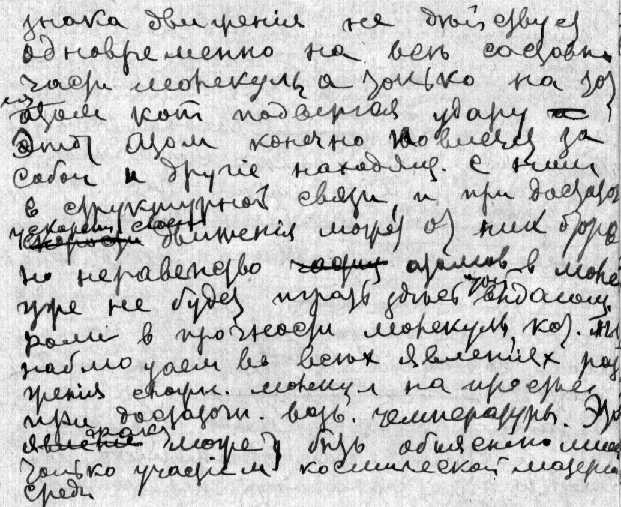 знака движенія не действует
одновременно на всѣ составн.
части молекулы а только на тот
из атом кот подвергся удару
Этот Атом конечно повлечет за
собой и другіе находящ. с ним
в структурной связи, и при достаточ
ускорен. своего движенія может от них оторв
но неравенство атомов в моле
куле не будет играть здесь той выдающ.
роли в прочности молекулы, кот. мы
наблюдаем во всех явленіях раз
женія сложн. молекул на простые
при достаточн. выс. температуры. Это
может быть объяснено мною
только участіем космической матеріи
среды